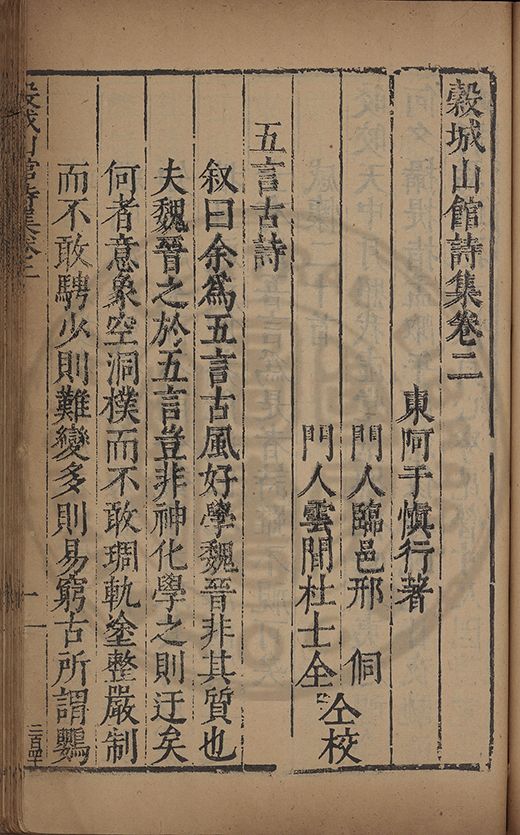 穀城山館詩集卷二
東阿于愼行著
門人臨邑邢侗
門人雲間杜士全
仝校
五言古詩
叙曰余爲五言古風好學魏晉非其質也
夫魏晉之於五言豈非神化學之則迂矣
何者意象空洞樸而不敢琱軌塗整嚴制
而不敢騁少則難變多則易窮古所謂鸚